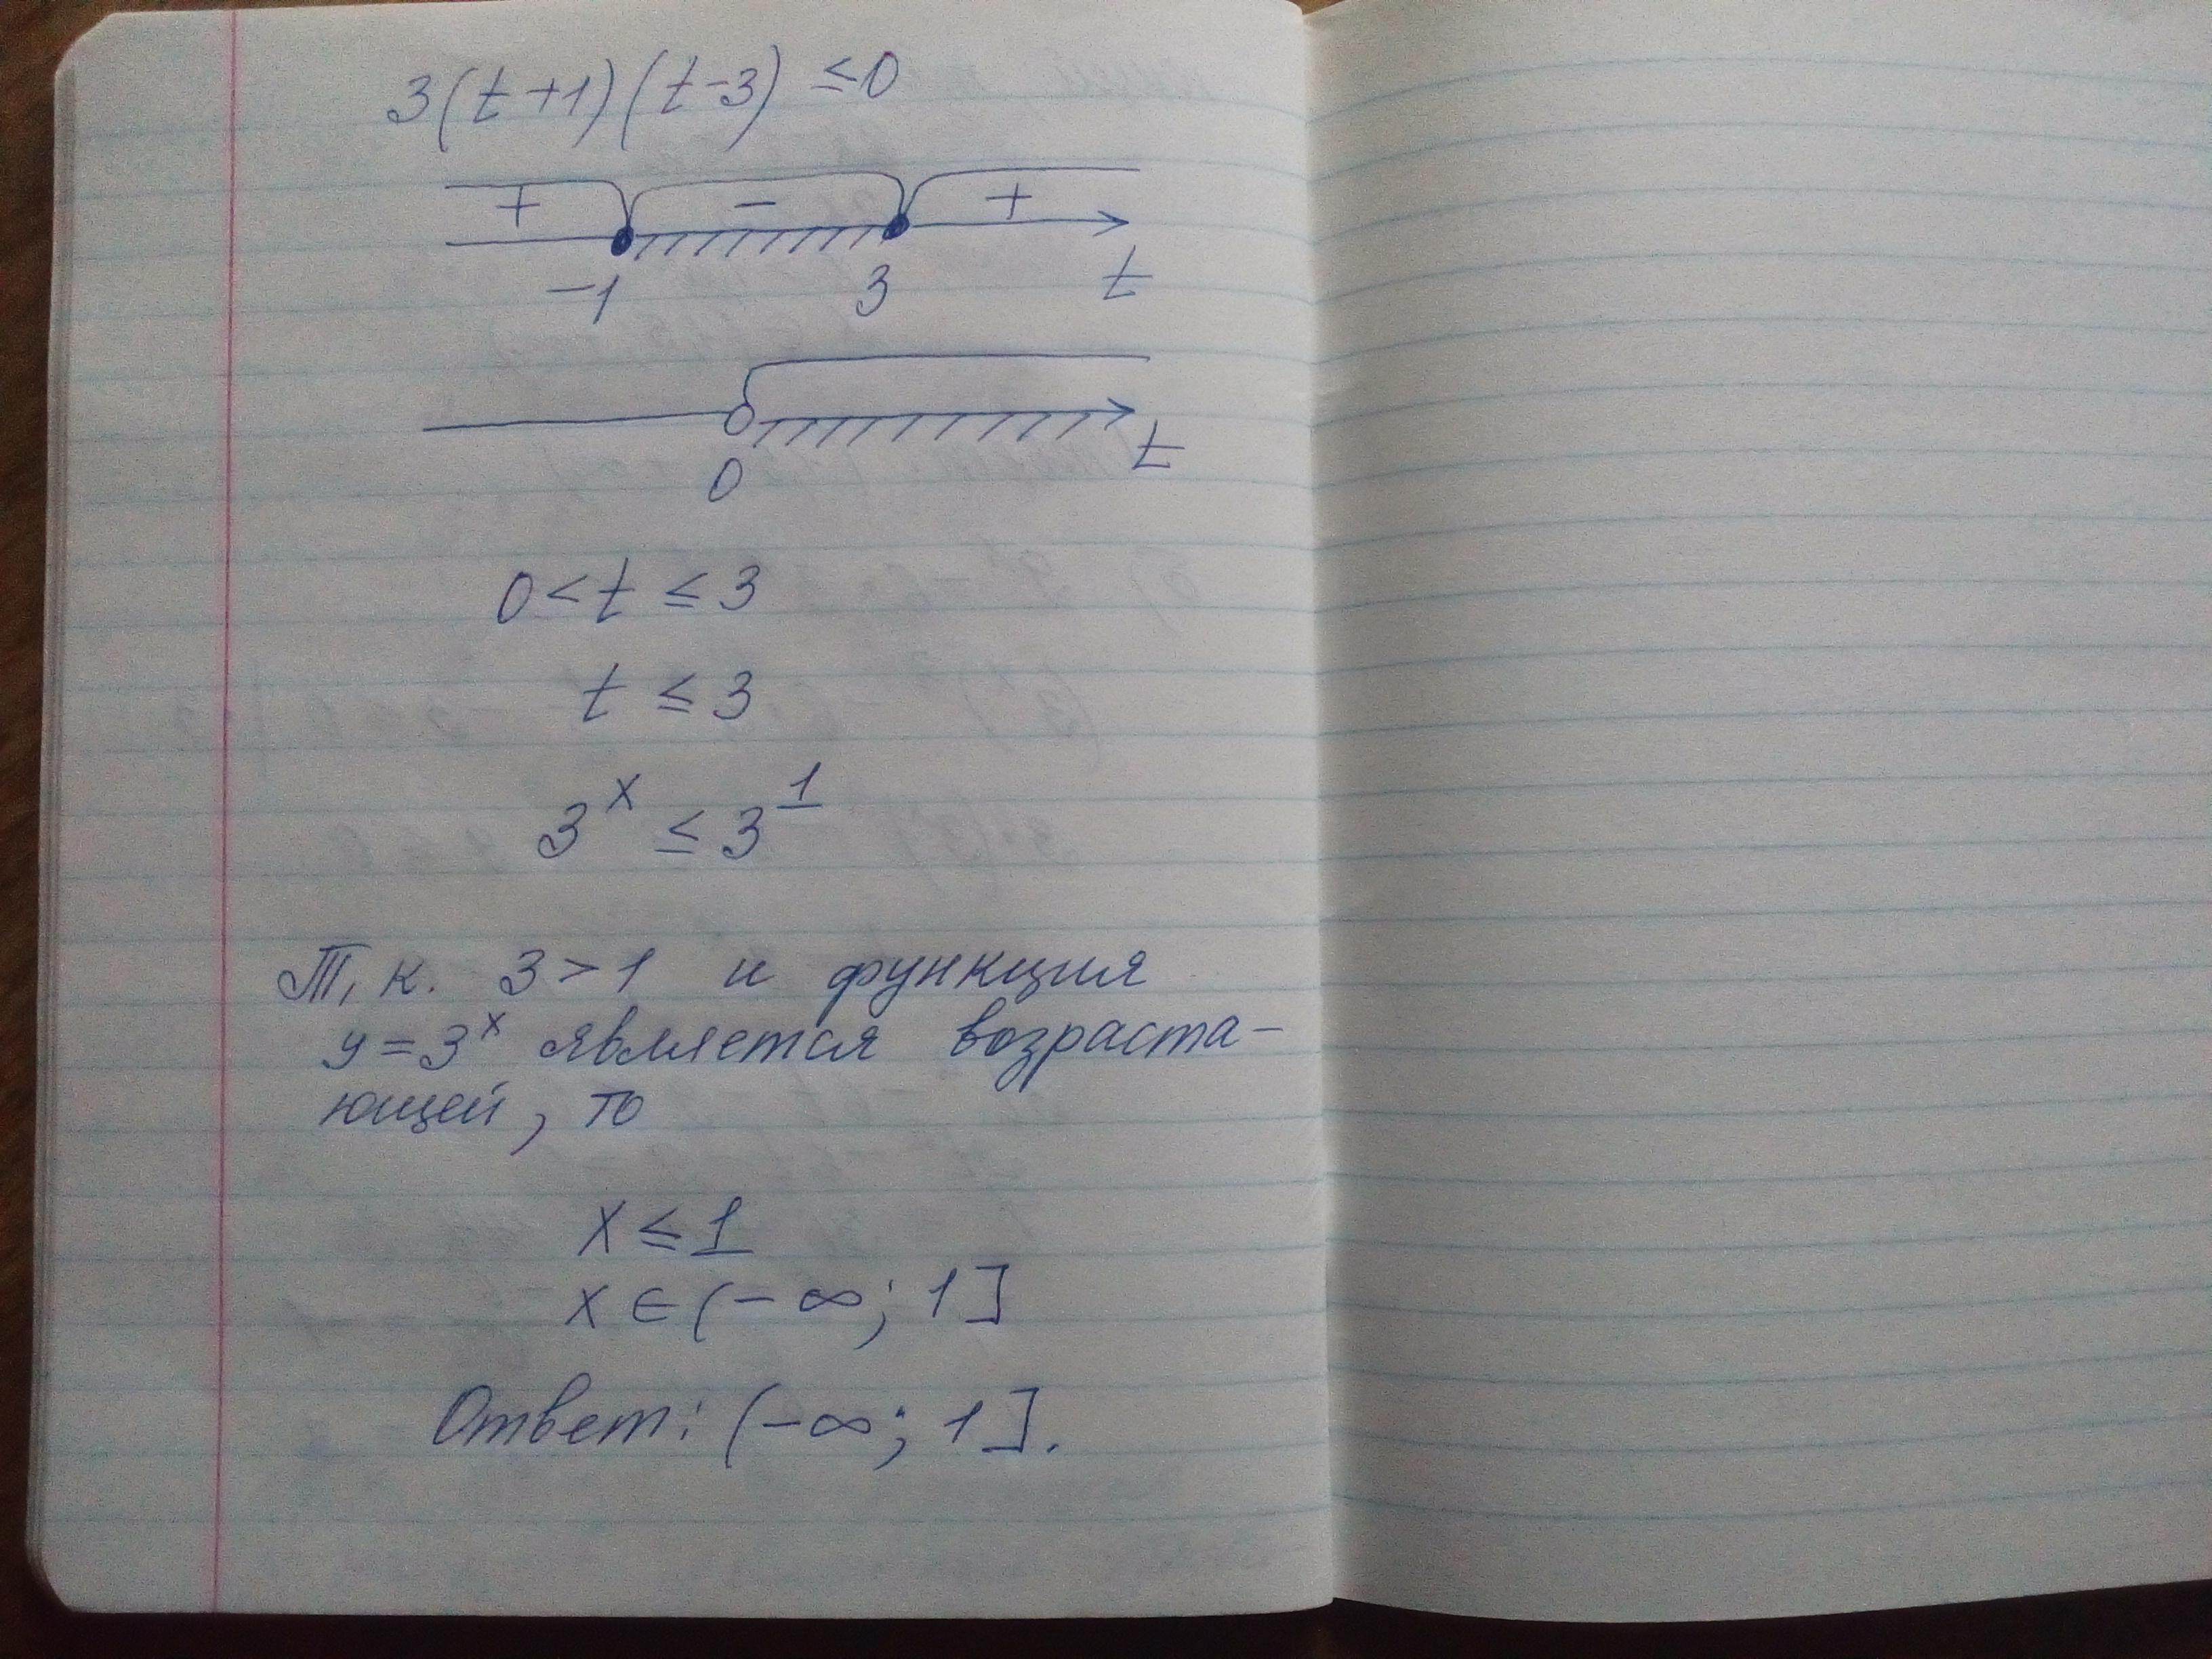 3(t+1)(t-3) ≤0
+ - +
-1 3 t
0 t
0<t ≤ 3
t ≤ 3
3^x ≤ 3^1
Т.к. 3>1 и функция
y=3^x является возраста-
ющей, то
x ≤ 1
x ∈ (-∞; 1]
Ответ: (-∞; 1].